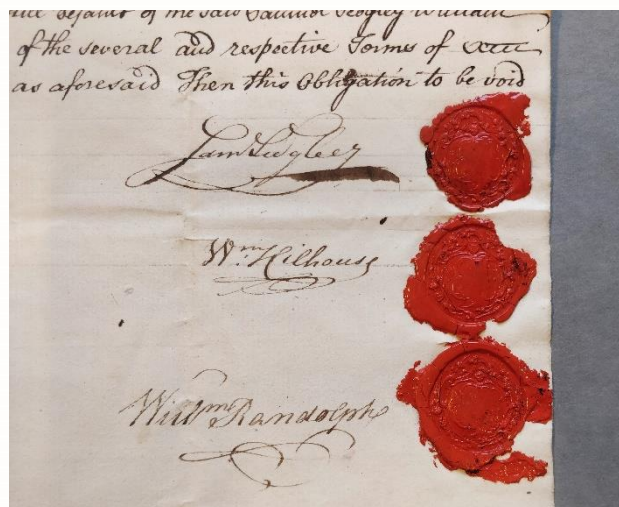 of me said Samuel Sedgley William
of the several and respective Terms of
as aforesaid Then this Obligation to be void
Sam Sedgley
Wm. Hilhouse
Willm Randolph